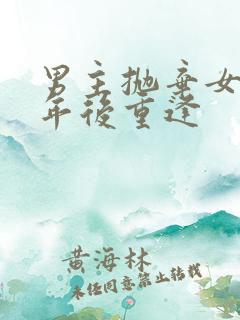 男主抛弃女
年後重逢
黄海林
未经同意禁止转载